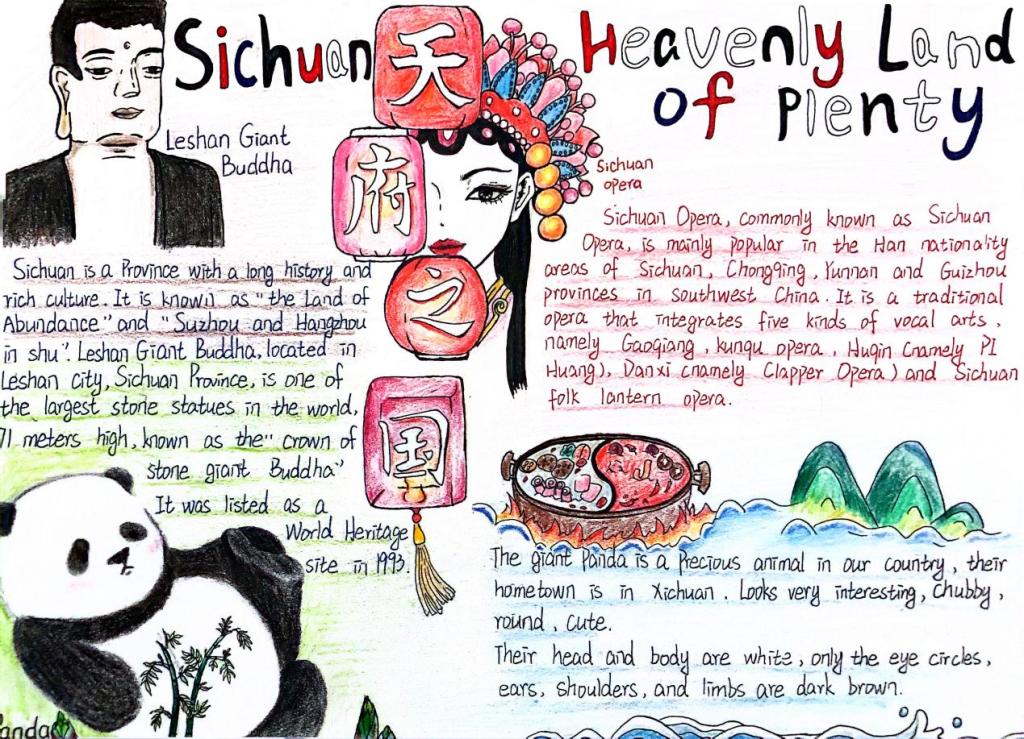 Sichuan
天
府
之
国
Heavenly Land
of Plenty
Leshan Giant
Buddha
Sichuan is a Province with a long history and
rich culture. It is known as "the Land of
Abundance" and "Suzhou and Hangzhou
in shu". Leshan Giant Buddha, located in
Leshan city, Sichuan Province, is one of
the largest stone statues in the world,
71 meters high, known as the "crown of
stone giant Buddha"
It was listed as a
World Heritage
site in 1993.
Sichuan
opera
Sichuan Opera, commonly known as Sichuan
Opera, is mainly popular in the Han nationality
areas of Sichuan, Chongqing, Yunnan and Guizhou
provinces in Southwest China. It is a traditional
opera that integrates five kinds of vocal arts,
namely Gaoqiang, kunqu opera, Huqin (namely PI
Huang), Danxi (namely Clapper Opera) and Sichuan
folk lantern opera.
The giant Panda is a Precious animal in our country, their
hometown is in Xichuan. Looks very interesting, Chubby,
round, cute.
Their head and body are white, only the eye circles,
ears, shoulders, and limbs are dark brown.
Panda